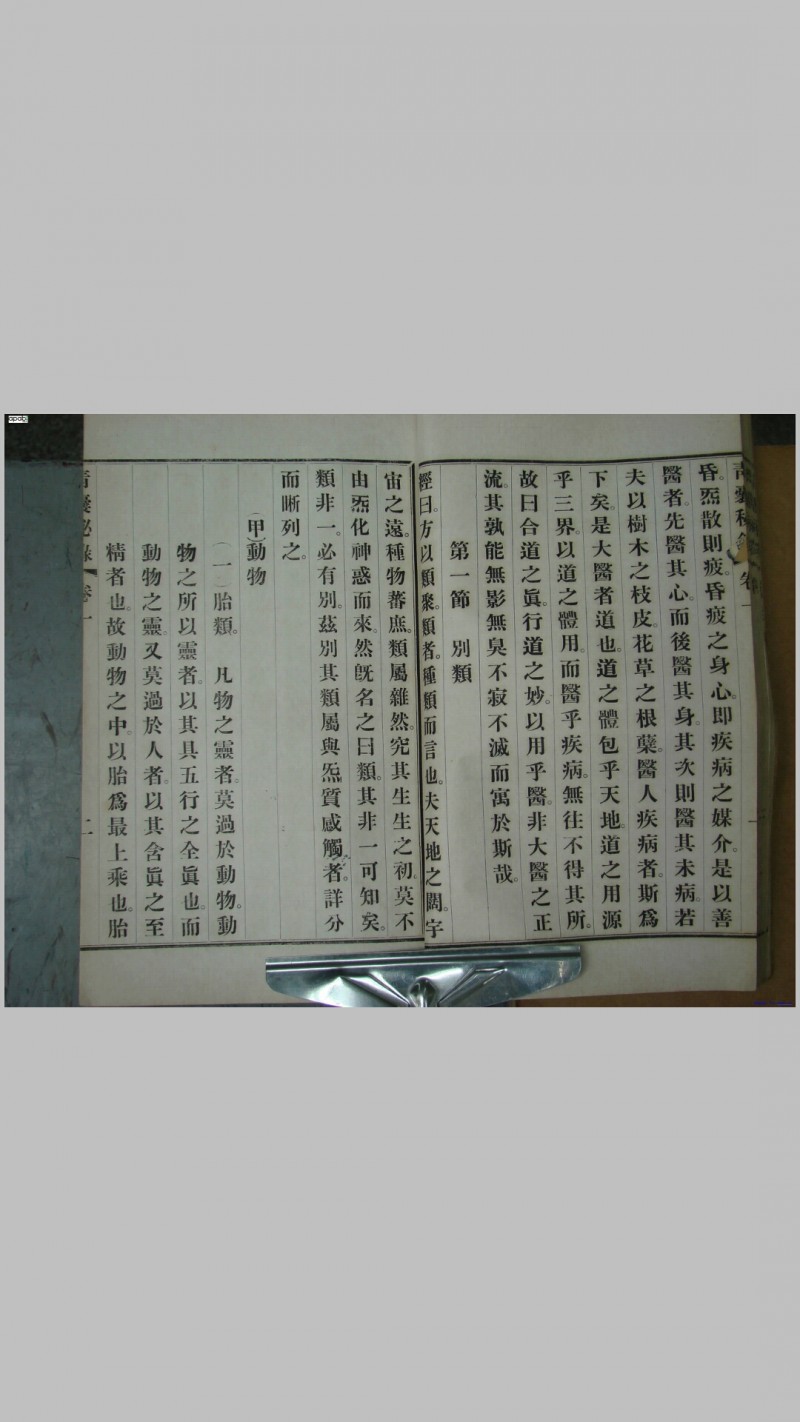 apabi
青囊秘錄 卷一
昏。炁散則疲。昏疲之身心。即疾病之媒介。是以善
醫者。先醫其心。而後醫其身。其次則醫其未病。若
夫以樹木之枝皮。花草之根蘖。醫人疾病者。斯爲
下矣。是大醫者道也。道之體包乎天地。道之用源
乎三界。以道之體用。而醫乎疾病。無往不得其所。
故曰合道之眞。行道之妙。以用乎醫。非大醫之正
流。其孰能無影無臭不寂不滅而寓於斯哉。
第一節 別類
經曰。方以類聚。類者。種類而言也。夫天地之闊。宇
宙之遠。種物蕃庶。類屬雜然。究其生生之初。莫不
由炁化神惑而來。然旣名之曰類。其非一可知矣。
類非一。必有別。茲別其類屬與炁質感觸者。詳分
而晰列之。
(甲)動物
(一)胎類。 凡物之靈者。莫過於動物。動
物之所以靈者。以其具五行之全眞也。而
動物之靈。又莫過於人者。以其含眞之至
精者也。故動物之中。以胎爲最上乘也。胎
青囊秘錄 卷一 二